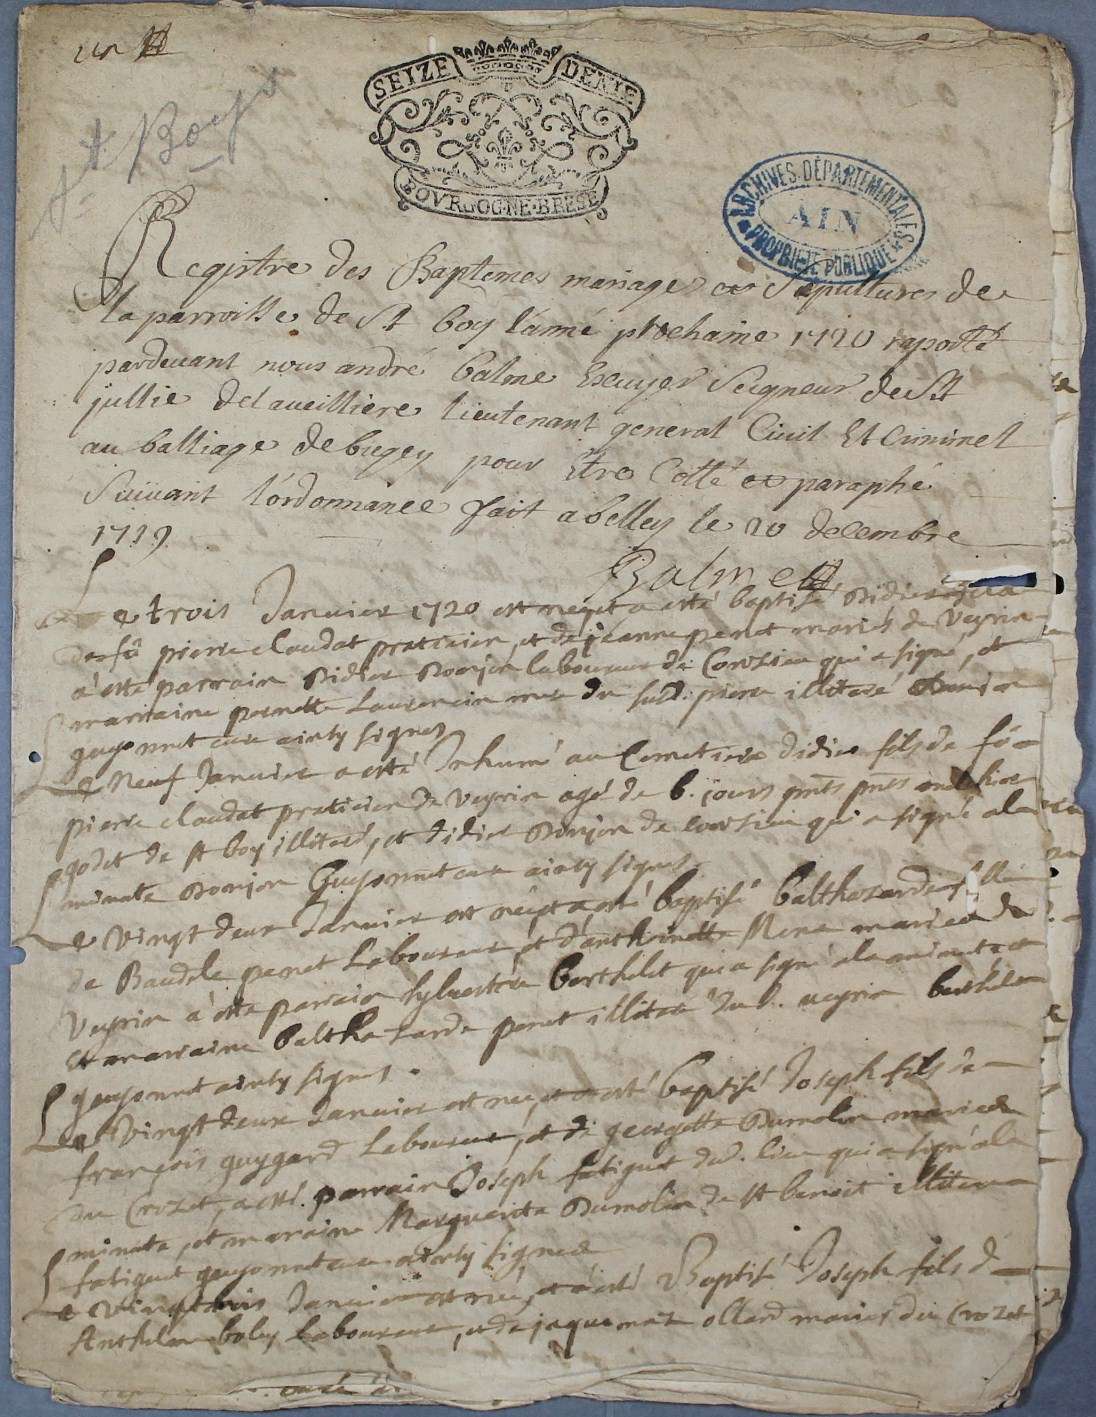 St Boys
SEIZE DENIE
BOVRGOGNE·BRESE
ARCHIVES DÉPARTEMENTALES
AIN
PROPRIÉTÉ PUBLIQUE
Registre des Baptemes mariages et Sepultures de
la parroisse de St boy l'ámé prochaine 1720 raporté
pardevant nous andré balme Escuyer Seigneur de St
jullie delaveilliere lieutenant general Civil Et Criminel
au balliage de bugey pour Etre Cotté et paraphé
Suivant l'ordonnance fait a belley le 20 decembre
1719
Balme
Le trois Januier 1720 est né et a esté baptisé Didier
de fû pierre claudat praticien, et de jeanne penet mariés de Veyrin
a esté parrain Didier Donjon laboureur de Corzieu qui a signé, et
marraine pernette Laurencin mere du susd. pierre illiterée Donjon
guyonnet curé ainsy signes
Le Neuf Januier a esté Inhumé au Cemetiere didier fils de fû
pierre claudat praticien de Veyrin agé de 6. jours pnts
godet de st boy illiteré, et didier Donjon de Corzieu qui a signé a la
minute Donjon Guyonnet curé ainsy signes
Le Vingt deux Januier est né et a esté baptisé balthazarde fille
de Baudile penet Laboureur, et d'anthoinette mariés de
Veyrin à esté parrain Sylvestre berthelet qui a signé a la minute
et marraine balthazarde penet illiterée dud. veyrin berthelet
guyonnet ainsy signes.
Le Vingt deux Januier est né, et a esté baptisé Joseph fils de
françois guygard Laboureur, et de georgette Dumolin mariés
du Crozet, a esté parrain Joseph fatiguet dud. lieu qui a signé a la
minute, et marraine Marguerite Dumolin de st benoit illiteree
fatiguet guyonnet curé ainsy signes
Le Vingt trois Januier est né, et a esté Baptisé Joseph fils d'
Anthelme boley Laboureur, et de jaquemaz ollard mariés du Crozet